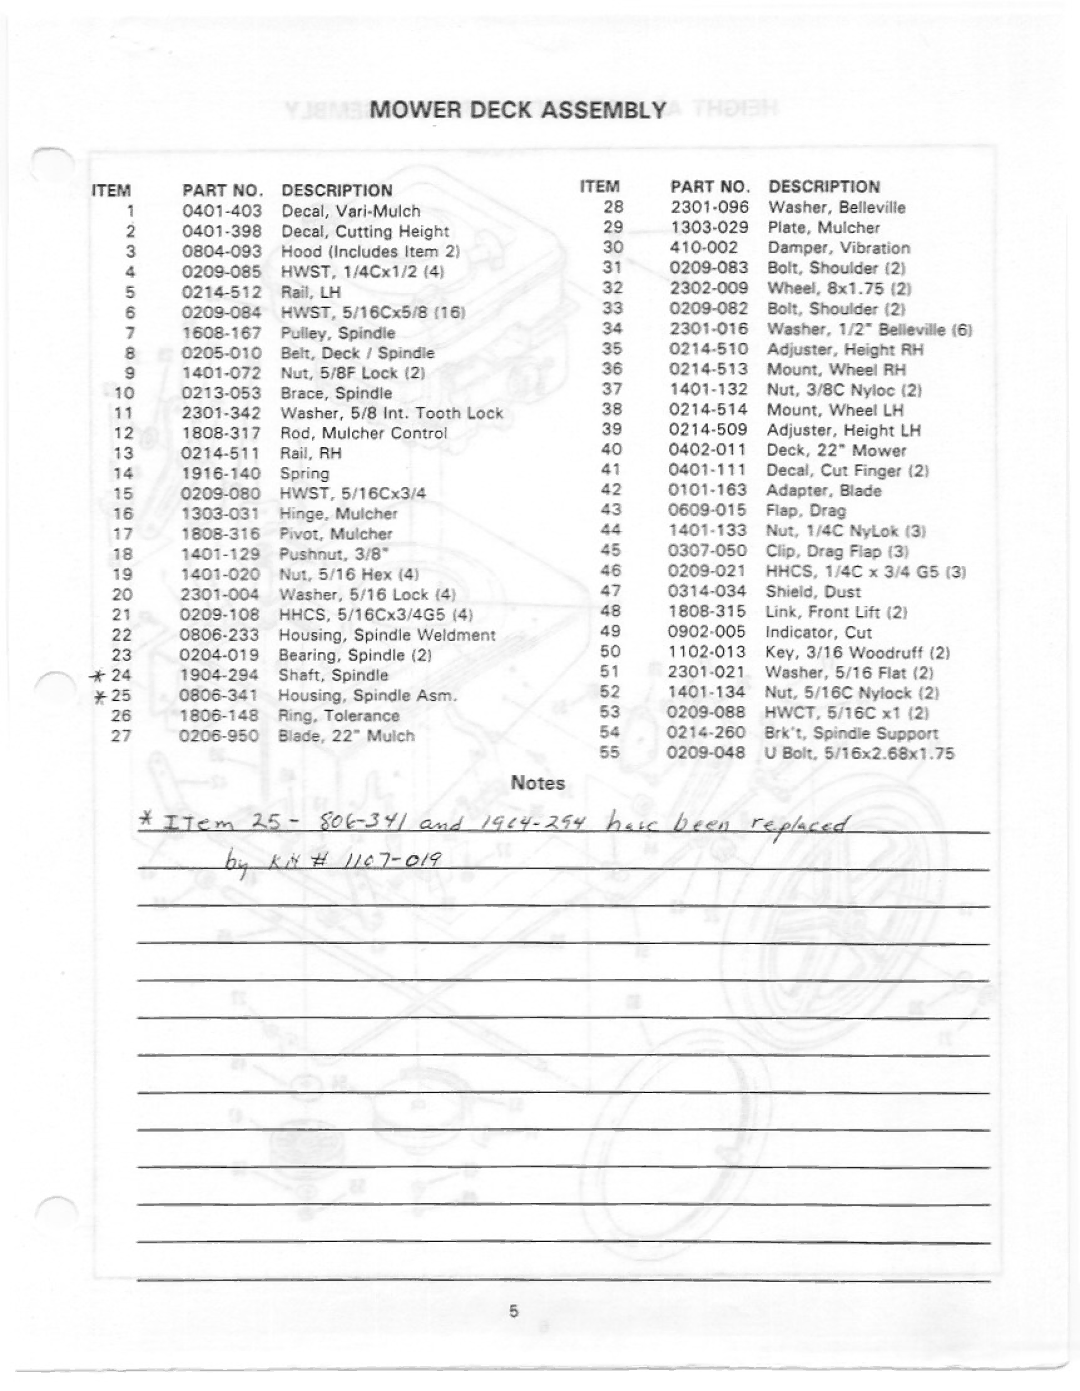 MOWER DECK ASSEMBLY
ITEM PART NO. DESCRIPTION
1 0401-403 Decal, Vari-Mulch
2 0401-398 Decal, Cutting Height
3 0804-093 Hood (Includes Item 2)
4 0209-085 HWST, 1/4Cx1/2 (4)
5 0214-512 Rail, LH
6 0209-084 HWST, 5/16Cx5/8 (16)
7 1608-167 Pulley, Spindle
8 0205-010 Belt, Deck / Spindle
9 1401-072 Nut, 5/8F Lock (2)
10 0213-053 Brace, Spindle
11 2301-342 Washer, 5/8 Int. Tooth Lock
12 1808-317 Rod, Mulcher Control
13 0214-511 Rail, RH
14 1916-140 Spring
15 0209-080 HWST, 5/16Cx3/4
16 1303-031 Hinge, Mulcher
17 1808-316 Pivot, Mulcher
18 1401-129 Pushnut, 3/8"
19 1401-020 Nut, 5/16 Hex (4)
20 2301-004 Washer, 5/16 Lock (4)
21 0209-108 HHCS, 5/16Cx3/4G5 (4)
22 0806-233 Housing, Spindle Weldment
23 0204-019 Bearing, Spindle (2)
* 24 1904-294 Shaft, Spindle
* 25 0806-341 Housing, Spindle Asm.
26 1806-148 Ring, Tolerance
27 0206-950 Blade, 22" Mulch
ITEM PART NO. DESCRIPTION
28 2301-096 Washer, Belleville
29 1303-029 Plate, Mulcher
30 410-002 Damper, Vibration
31 0209-083 Bolt, Shoulder (2)
32 2302-009 Wheel, 8x1.75 (2)
33 0209-082 Bolt, Shoulder (2)
34 2301-016 Washer, 1/2" Belleville (6)
35 0214-510 Adjuster, Height RH
36 0214-513 Mount, Wheel RH
37 1401-132 Nut, 3/8C Nyloc (2)
38 0214-514 Mount, Wheel LH
39 0214-509 Adjuster, Height LH
40 0402-011 Deck, 22" Mower
41 0401-111 Decal, Cut Finger (2)
42 0101-163 Adapter, Blade
43 0609-015 Flap, Drag
44 1401-133 Nut, 1/4C NyLok (3)
45 0307-050 Clip, Drag Flap (3)
46 0209-021 HHCS, 1/4C x 3/4 G5 (3)
47 0314-034 Shield, Dust
48 1808-315 Link, Front Lift (2)
49 0902-005 Indicator, Cut
50 1102-013 Key, 3/16 Woodruff (2)
51 2301-021 Washer, 5/16 Flat (2)
52 1401-134 Nut, 5/16C Nylock (2)
53 0209-088 HWCT, 5/16C x1 (2)
54 0214-260 Brk't, Spindle Support
55 0209-048 U Bolt, 5/16x2.68x1.75
Notes
* Item 25 - 806-341 and 1904-294 have been replaced
by Kit # 1107-019
5